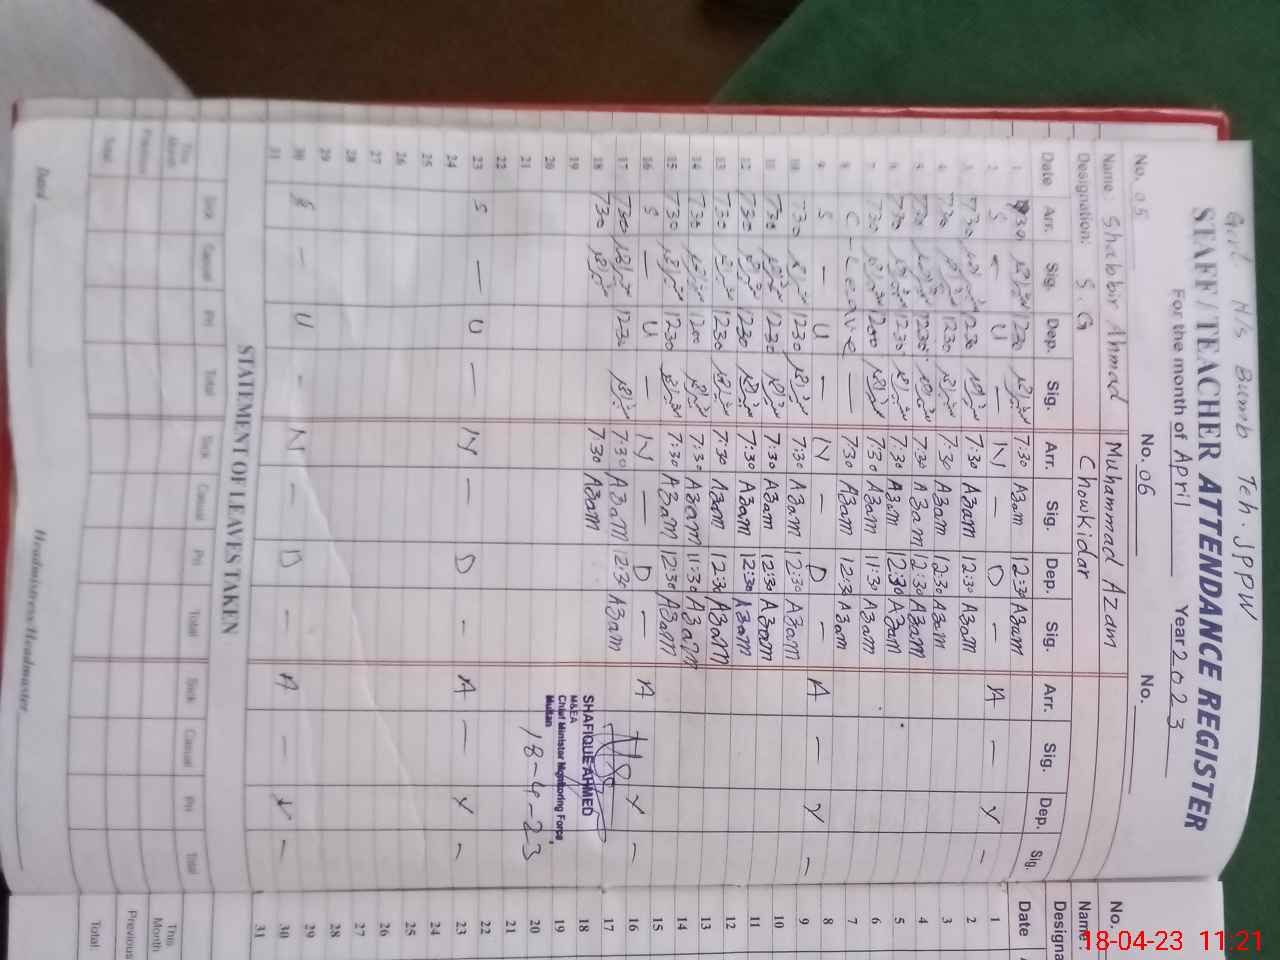 Govt H/s Bumb Teh. JPPW
STAFF/TEACHER ATTENDANCE REGISTER
For the month of April Year 2023
No. 05 No. 06 No.
Name: Shabbir Ahmad Muhammad Azam
Designation: S.G Chowkidar
Date Arr. Sig. Dep. Sig. Arr. Sig. Dep. Sig. Arr. Sig. Dep. Sig.
1 730 1230 7:30 A3am 12:30 A3am
2 S U — N — D — A — Y —
3 730 1230 7:30 A3am 12:30 A3am
4 730 1230 7:30 A3am 12:30 A3am
5 730 1230 7:30 A3am 12:30 A3am
6 730 1230 7:30 A3am 12:30 A3am
7 730 1200 7:30 A3am 11:30 A3am
8 C-Leave — 7:30 A3am 12:30 A3am
9 S — U — N — D — A — Y —
10 730 1230 7:30 A3am 12:30 A3am
11 730 1230 7:30 A3am 12:30 A3am
12 730 1230 7:30 A3am 12:30 A3am
13 730 1230 7:30 A3am 12:30 A3am
14 730 1200 7:30 A3am 11:30 A3am
15 730 1230 7:30 A3am 12:30 A3am
16 S — U — N — D — A Y —
17 730 1230 7:30 A3am 12:30 A3am
18 730 7:30 A3am
19
20
21
22
23 S — U — N — D — A — Y —
24
25
26
27
28
29
30 S — U — N — D — A — Y —
31
SHAFIQUE AHMED
M&EA
Chief Minister Monitoring Force,
Multan
18-4-23
STATEMENT OF LEAVES TAKEN
Sick Casual Pri Total Sick Casual Pri Total Sick Casual Pri Total
This Month
Previous
Total
Dated Headmistress/Headmaster
No.
Name:
Designa
Date
1
2
3
4
5
6
7
8
9
10
11
12
13
14
15
16
17
18
19
20
21
22
23
24
25
26
27
28
29
30
31
This Month
Previous
Total
18-04-23 11:21